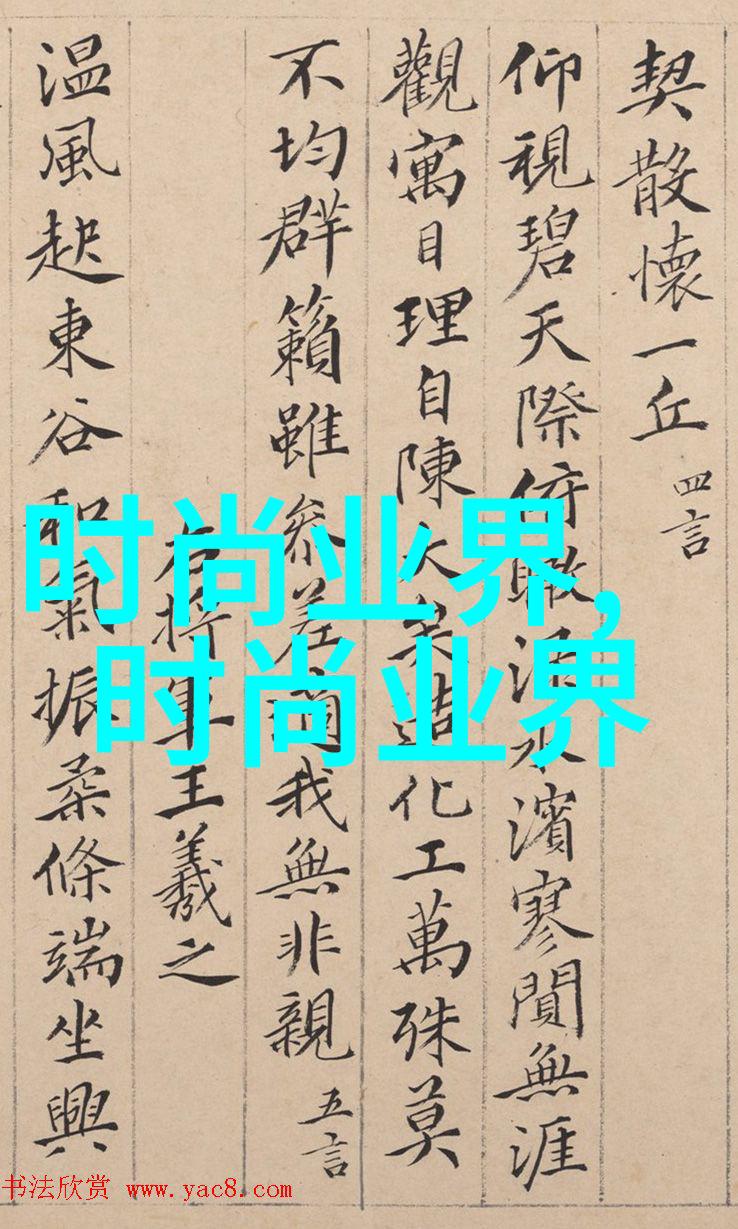 契散懷一丘 四言
仰視碧天際俯瞰水濱寥閴無涯
觀寓目理自陳大矣造化工萬殊莫
不均群籟雖參差適我無非親 五言
右將軍王羲之
温風起東谷和氣振柔條端坐興
时尚业界,
时尚业界
书法欣赏 www.yac8.com